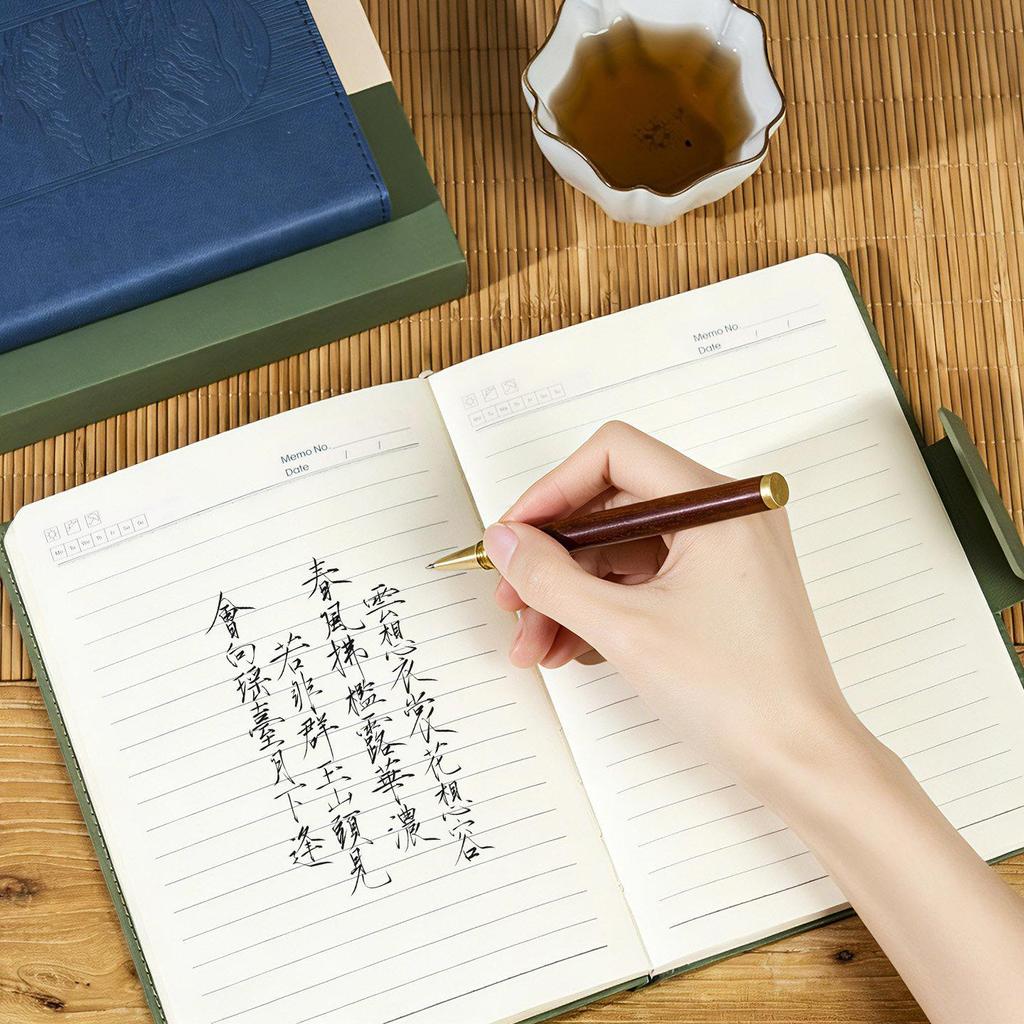 Memo No.
Date / /
Mo Tu We Th Fr Sa Su
雲想衣裳花想容
春風拂檻露華濃
若非群玉山頭見
會向瑶臺月下逢
Memo No.
Date / /
Mo Tu We Th Fr Sa Su